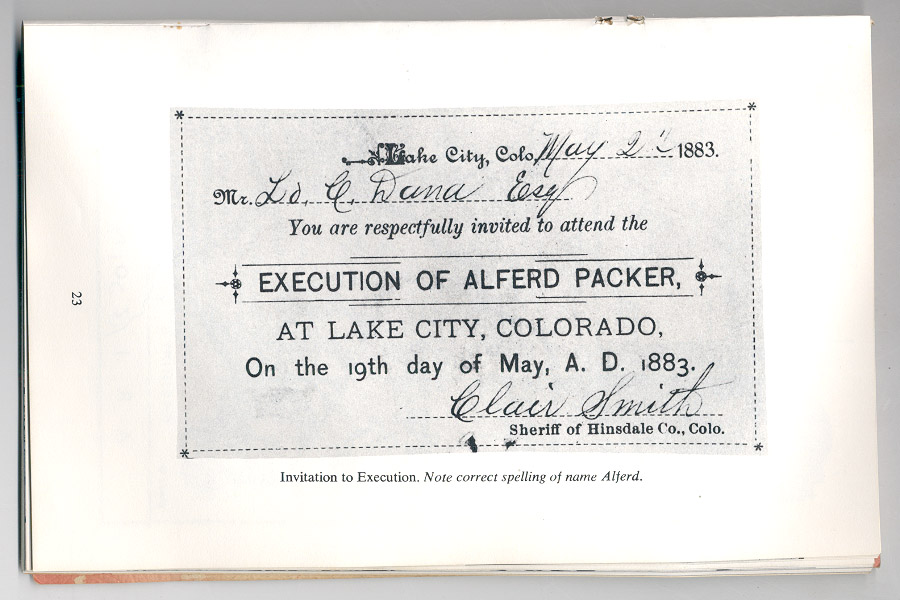 Lake City, Colo. May 2d 1883.
Mr. Ld. C. Dana Esq
You are respectfully invited to attend the
EXECUTION OF ALFERD PACKER,
AT LAKE CITY, COLORADO,
On the 19th day of May, A. D. 1883.
Clair Smith
Sheriff of Hinsdale Co., Colo.
Invitation to Execution. Note correct spelling of name Alferd.
23